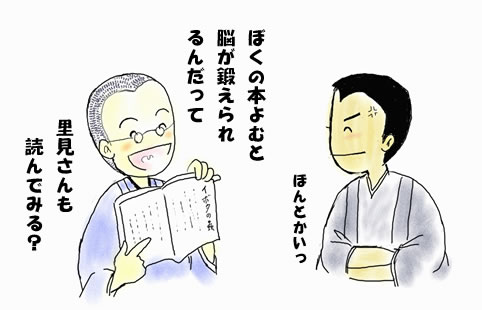 ぼくの本よむと
脳が鍛えられ
るんだって
里見さんも
読んでみる?
ほんとかいっ
イボタの森